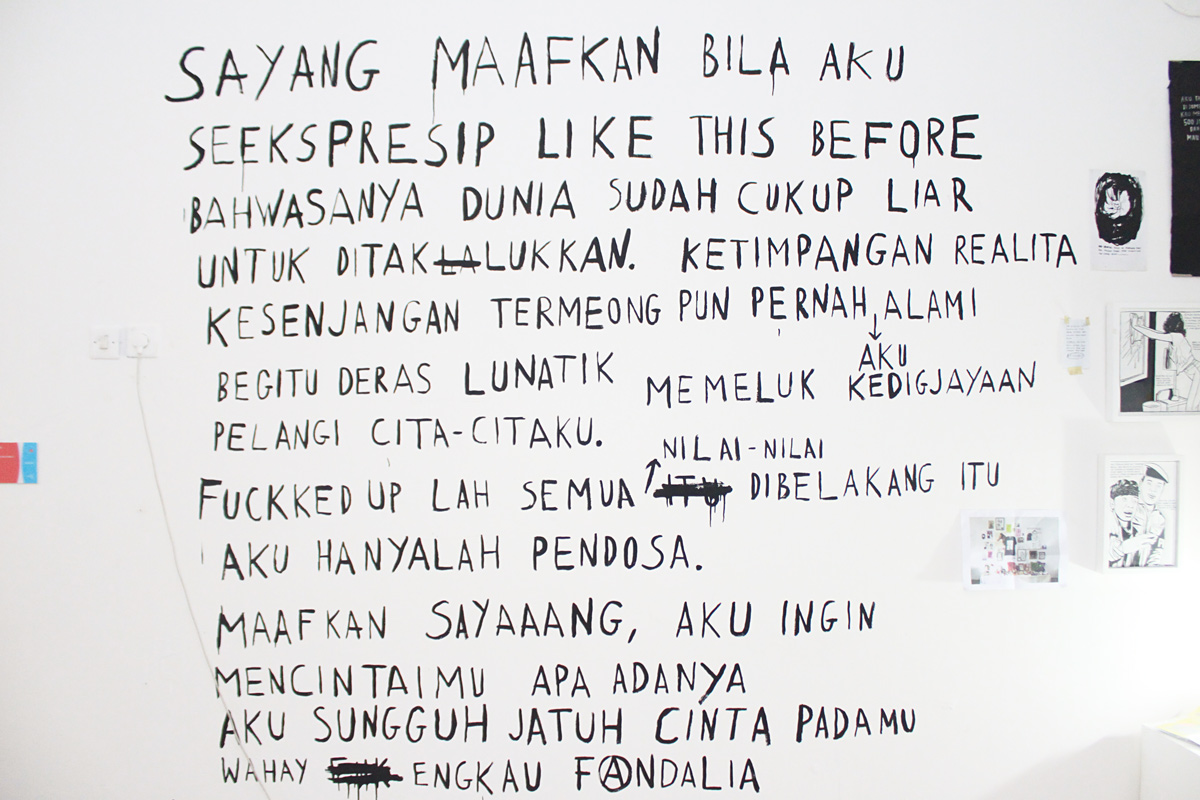 SAYANG MAAFKAN BILA AKU
SEEKSPRESIP LIKE THIS BEFORE
BAHWASANYA DUNIA SUDAH CUKUP LIAR
UNTUK DITAKLALUKKAN. KETIMPANGAN REALITA
KESENJANGAN TERMEONG PUN PERNAH, ALAMI
AKU
BEGITU DERAS LUNATIK MEMELUK KEDIGJAYAAN
PELANGI CITA-CITAKU.
NILAI-NILAI
FUCKKED UP LAH SEMUA ITU DIBELAKANG ITU
AKU HANYALAH PENDOSA.
MAAFKAN SAYAAANG, AKU INGIN
MENCINTAIMU APA ADANYA
AKU SUNGGUH JATUH CINTA PADAMU
WAHAY ENGKAU FANDALIA